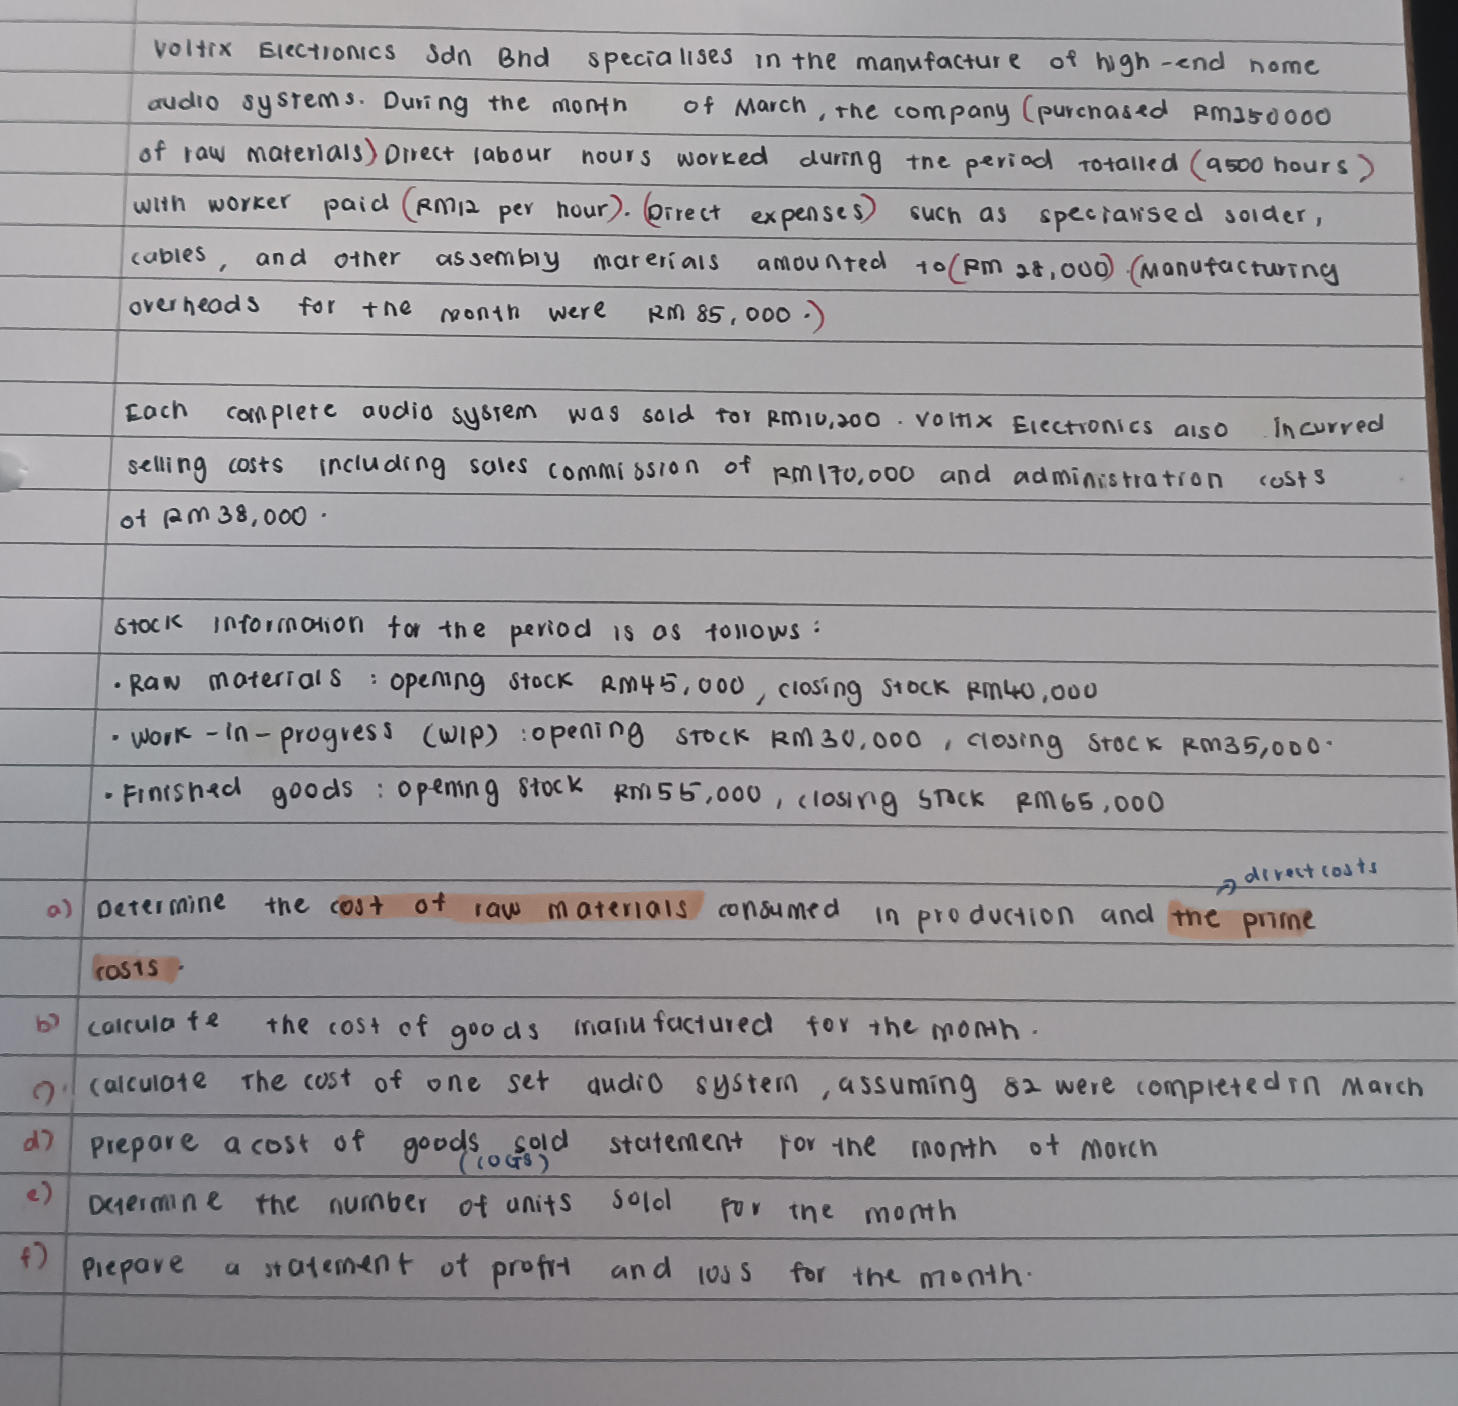 Voltix Electronics Sdn Bhd specialises in the manufacture of high-end home
audio systems. During the month of March, the company (purchased RM250000
of raw materials) Direct labour hours worked during the period totalled (9500 hours)
with worker paid (RM12 per hour). (Direct expenses) such as specialised solder,
cables, and other assembly materials amounted to (RM 28,000). (Manufacturing
overheads for the month were RM 85,000.)
Each complete audio system was sold for RM10,200. Voltix Electronics also incurred
selling costs including sales commission of RM170,000 and administration costs
of RM 38,000.
Stock information for the period is as follows:
• Raw materials : opening stock RM45,000, closing stock RM40,000
• Work-in-progress (WIP) : opening stock RM30,000, closing stock RM35,000.
• Finished goods : opening stock RM55,000, closing stock RM65,000
→ direct costs
a) Determine the cost of raw materials consumed in production and the prime
costs.
b) calculate the cost of goods manufactured for the month.
c) calculate the cost of one set audio system, assuming 82 were completed in March
d) Prepare a cost of goods sold statement for the month of March
(COGS)
e) Determine the number of units sold for the month
f) Prepare a statement of profit and loss for the month.